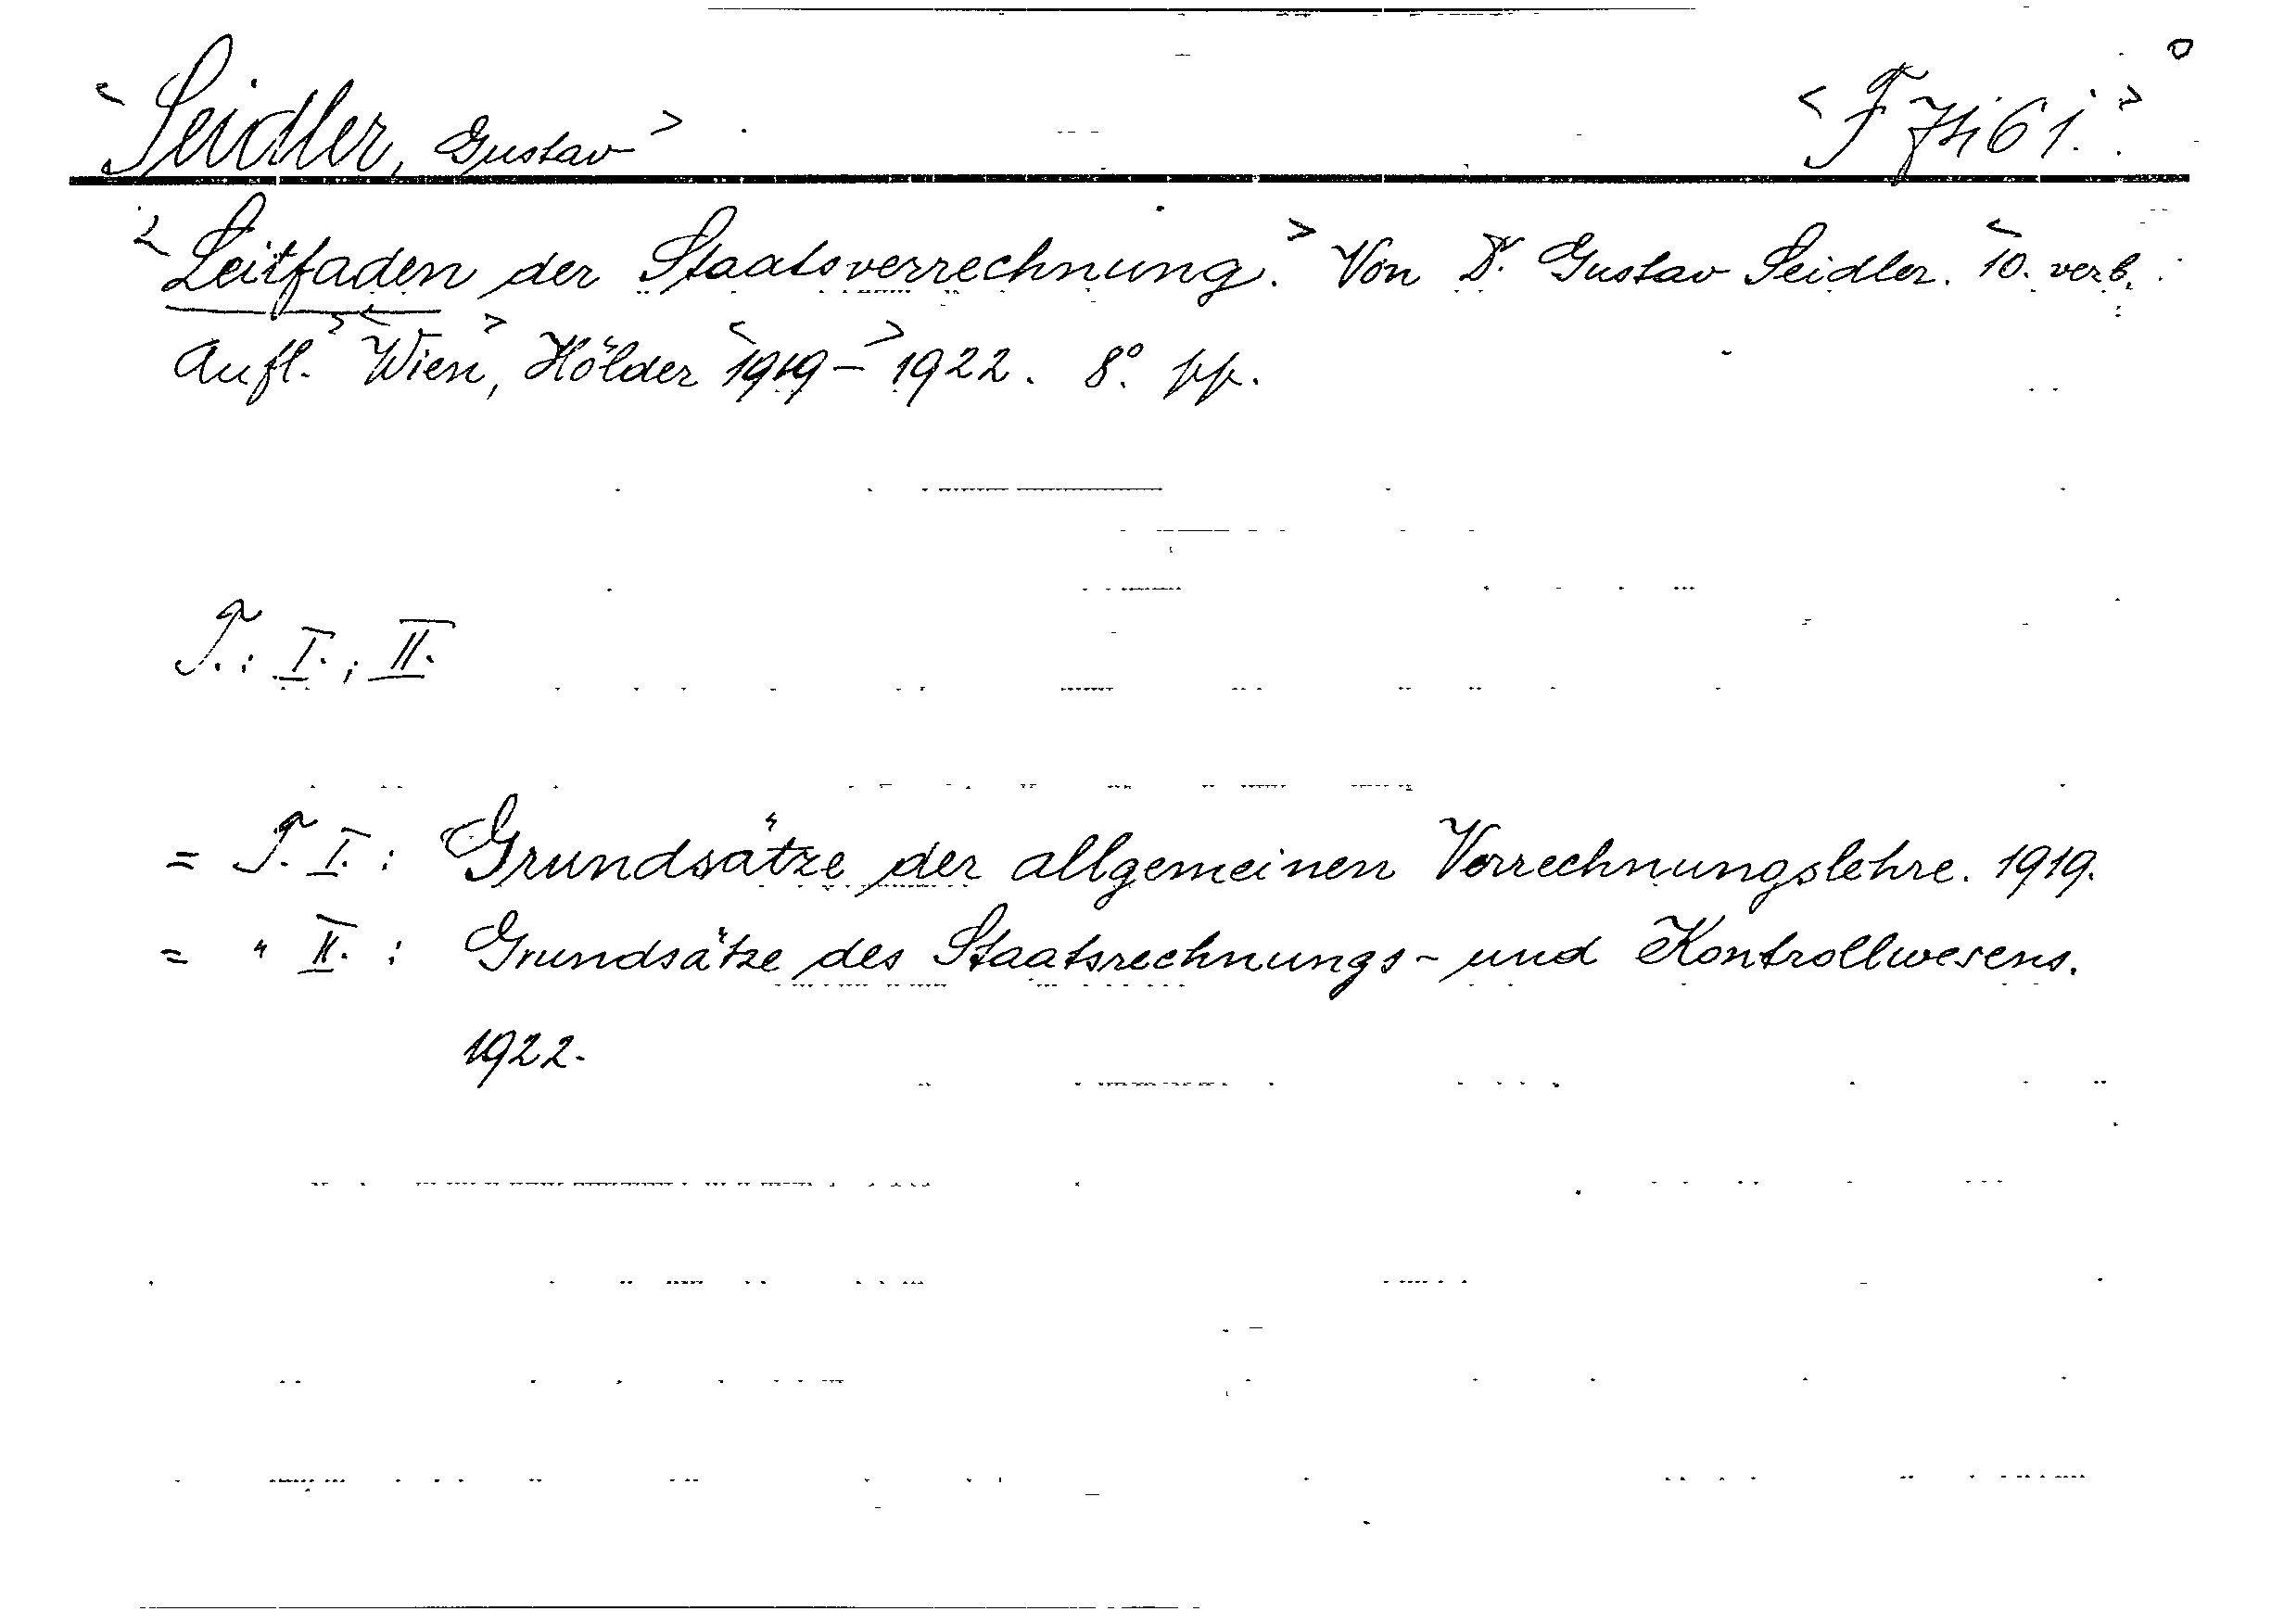 <Seidler, Gustav> <F 7461.>
<Leitfaden der Staatsverrechnung.> Von Dr. Gustav Seidler. <10. verb.
Aufl.> <Wien>, Hölder <1919-> 1922. 8°. pp.
T.: I.; II.
= T. I.: Grundsätze der allgemeinen Verrechnungslehre. 1919.
= " II.: Grundsätze des Staatsrechnungs- und Kontrollwesens.
1922.